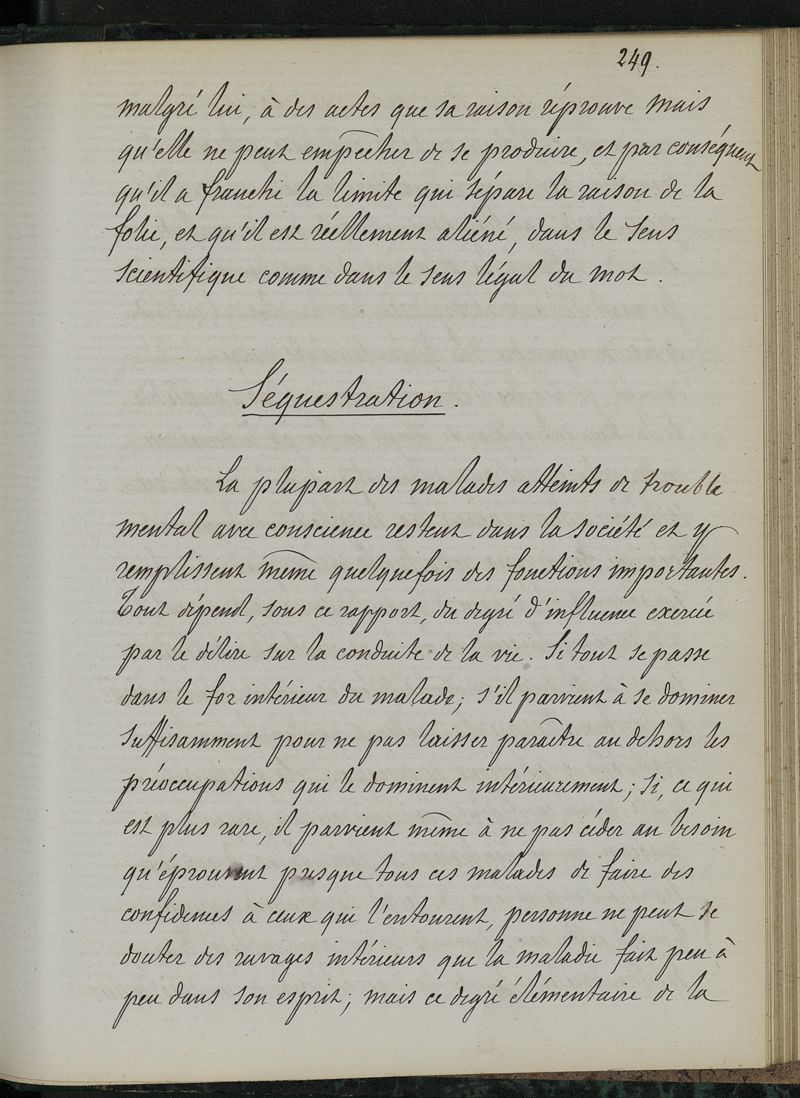 249.
malgré lui, à des actes que sa raison réprouve mais
qu'elle ne peut empêcher de se produire, et par conséquent
qu'il a franchi la limite qui sépare la raison de la
folie, et qu'il est réellement aliéné, dans le sens
scientifique comme dans le sens légal du mot.
Séquestration.
La plupart des malades atteints de trouble
mental avec conscience restent dans la société et y
remplissent même quelquefois des fonctions importantes.
Tout dépend, sous ce rapport, du degré d'influence exercée
par le délire sur la conduite de la vie. Si tout se passe
dans le for intérieur du malade; s'il parvient à se dominer
suffisamment pour ne pas laisser paraître au dehors les
préoccupations qui le dominent intérieurement; si, ce qui
est plus rare, il parvient même à ne pas céder au besoin
qu'éprouvent presque tous ces malades de faire des
confidences à ceux qui l'entourent, personne ne peut se
douter des ravages intérieurs que la maladie fait peu à
peu dans son esprit; mais ce degré élémentaire de la